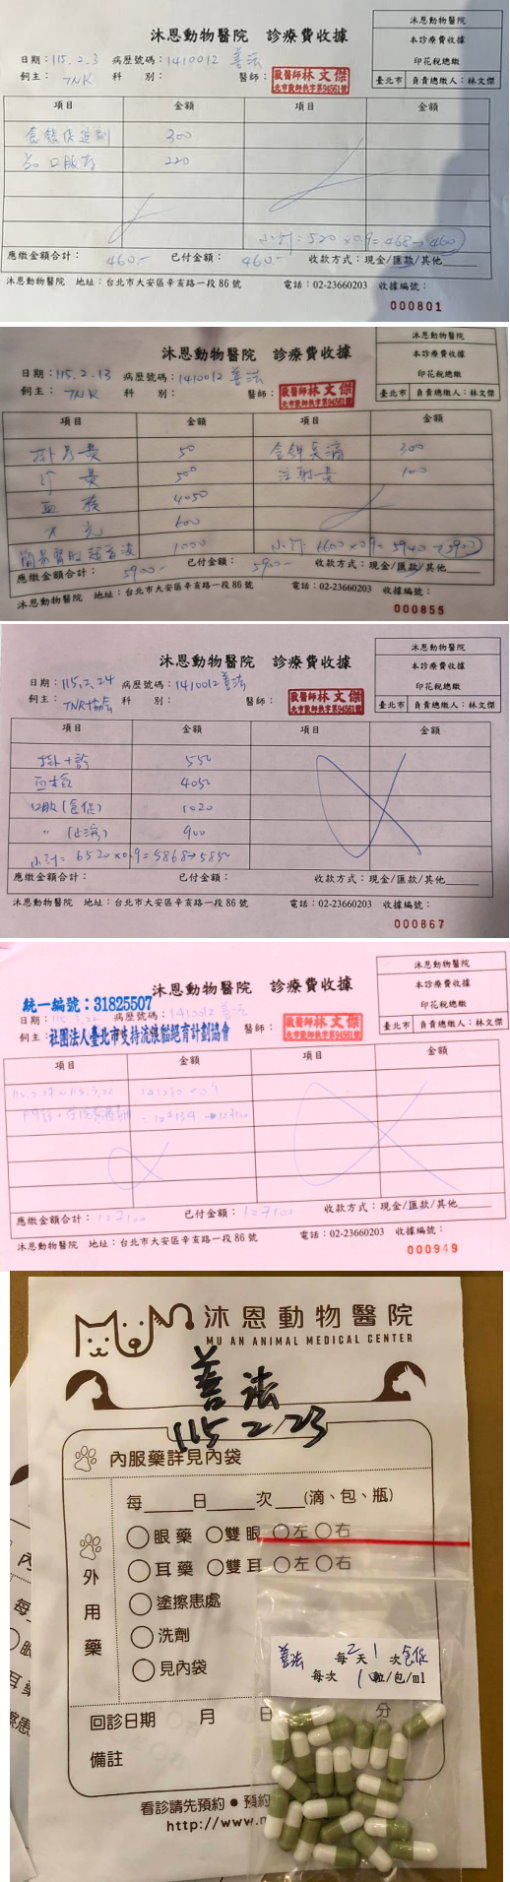 沐恩動物醫院 診療費收據
沐恩動物醫院
本診療費收據
印花稅總繳
臺北市 負責總繳人：林文傑
日期：115.2.3 病歷號碼：1410012 善法
飼主：TNR 科 別： 醫師： 獸醫師林文傑
項目 金額 項目 金額
食餵促進劑 300
口服藥 220
小計：520×0.9=468→460
應繳金額合計：460.- 已付金額：460.- 收款方式：現金/匯款/其他
沐恩動物醫院 地址：台北市大安區辛亥路一段86號 電話：02-23660203 收據編號：
000801
沐恩動物醫院 診療費收據
沐恩動物醫院
本診療費收據
印花稅總繳
臺北市 負責總繳人：林文傑
日期：115.2.13 病歷號碼：1410012 善法
飼主：TNR 科 別： 醫師： 獸醫師林文傑
項目 金額 項目 金額
掛號費 50 300
診費 500 注射費 100
血檢 4050
X光 600
1000 小計 6600×0.9=5940→5900
應繳金額合計：5900.- 已付金額：5900.- 收款方式：現金/匯款/其他
沐恩動物醫院 地址：台北市大安區辛亥路一段86號 電話：02-23660203 收據編號：
000855
沐恩動物醫院 診療費收據
沐恩動物醫院
本診療費收據
印花稅總繳
臺北市 負責總繳人：林文傑
日期：115.2.24 病歷號碼：1410012 善法
飼主：TNR協會 科 別： 醫師： 獸醫師林文傑
項目 金額 項目 金額
掛+診 550
血檢 4050
口服(食促) 1020
〃 (止瀉) 900
小計=6520×0.9=5868→5850
應繳金額合計： 已付金額： 收款方式：現金/匯款/其他
沐恩動物醫院 地址：台北市大安區辛亥路一段86號 電話：02-23660203 收據編號：
000867
沐恩動物醫院 診療費收據
沐恩動物醫院
本診療費收據
印花稅總繳
臺北市 負責總繳人：林文傑
統一編號：31825507
日期： 病歷號碼：1410012 善法
飼主：社團法人臺北市支持流浪貓絕育計劃協會 醫師： 獸醫師林文傑
項目 金額 項目 金額
應繳金額合計：127100 已付金額：127100 收款方式：現金/匯款/其他
沐恩動物醫院 地址：台北市大安區辛亥路一段86號 電話：02-23660203 收據編號：
000949
沐恩動物醫院
MU AN ANIMAL MEDICAL CENTER
善法
115 2/23
內服藥詳見內袋
每 日 次 (滴、包、瓶)
外用藥
眼藥 雙眼 左 右
耳藥 雙耳 左 右
塗擦患處
洗劑
見內袋
善法 每2天1次 食促
每次 1 粒/包/ml
回診日期 月 日 分
備註
看診請先預約 ● 預約
http://www.